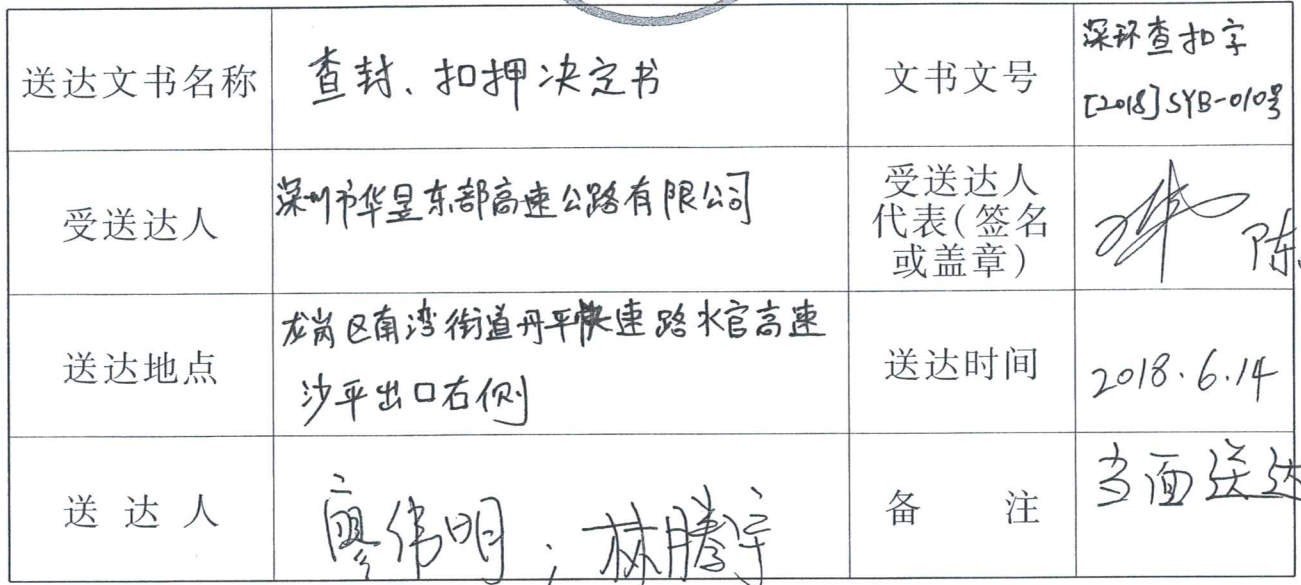 送达文书名称 查封、扣押决定书 文书文号 深环查扣字
[2018]SYB-010号
受送达人 深圳市华昱东部高速公路有限公司 受送达人
代表(签名
或盖章)
陈
送达地点 龙岗区南湾街道丹平快速路水官高速
沙平出口右侧
送达时间 2018.6.14
送达人 廖伟明; 林腾宇 备注 当面送达